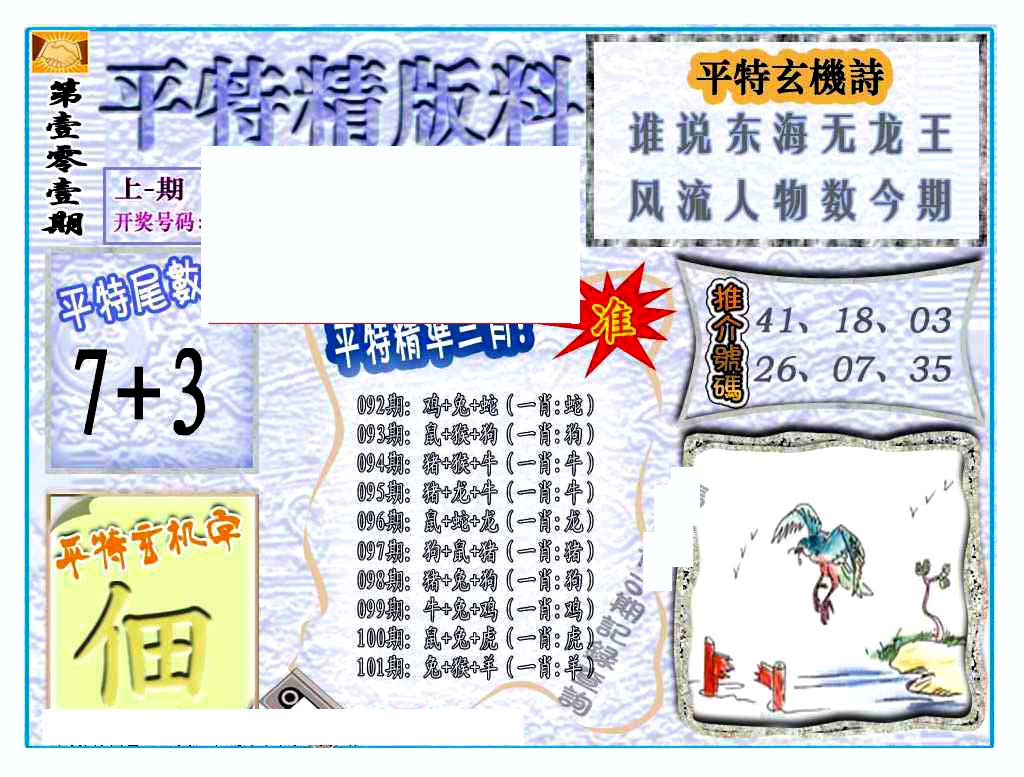 第壹零壹期
平特精版料
上-期
开奖号码:
平特玄機詩
谁说东海无龙王
风流人物数今期
平特尾數
7+3
平特精準三肖:
准
推介號碼
41、18、03
26、07、35
092期: 鸡+兔+蛇（一肖:蛇）
093期: 鼠+猴+狗（一肖:狗）
094期: 猪+猴+牛（一肖:牛）
095期: 猪+龙+牛（一肖:牛）
096期: 鼠+蛇+龙（一肖:龙）
097期: 狗+鼠+猪（一肖:猪）
098期: 猪+兔+狗（一肖:狗）
099期: 牛+兔+鸡（一肖:鸡）
100期: 鼠+兔+虎（一肖:虎）
101期: 兔+猴+羊（一肖:羊）
平特玄机字
佃
期記錄查詢